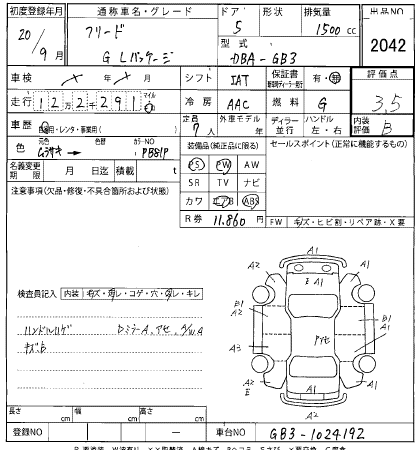 初度登録年月 通称車名・グレード ドア 形状 排気量 出品NO
20/9月 フリード G Lパッケージ 5 1500cc 2042
型式 DBA-GB3
車検 / 月 / 月 シフト IAT 保証書 有・無 評価点
走行 122291 マイル 冷房 AAC 燃料 G 3.5
車歴 自家用・レンタ・事業用( ) 定員 7人 外車モデル 年 ディーラー 並行 ハンドル 左・右 内装評価 B
色 元色 ムラサキ カラーNO PB81P
装備品(純正品に限る) セールスポイント(正常に機能するもの)
名義変更期限 月 日迄 積載 t
PS PW AW
注意事項(欠品・修復・不具合箇所および状態)
SR TV ナビ
カワ エアB ABS
R券 11.860円 FW キズ・ヒビ割・リペア跡・X要
検査員記入 内装 キズ・汚レ・コゲ・穴・スレ・キレ
ハンドルハゲ DミラーA、アセ、A/W.A
キズ、B
A1
A2 A1
E A1
B1 B1
アセ A1
A3 A1
A2 A1
E
A2
長さ cm 幅 cm 高さ cm
登録NO 車台NO GB3-1024192